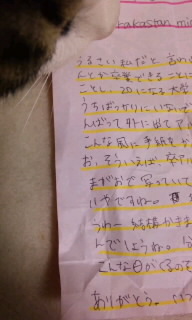 akastan mi
うるさい私だと言
んとか卒業できることに
ことし、20になる大学
うちばっかりにいないで
んばって外に出てア
こんな風に手紙をお
お、そういえば、卒ア
まがおで写っていて
いやですね。
うわー 結構かきま
んでしょうね。
こんな日がくるので
ありがとう。